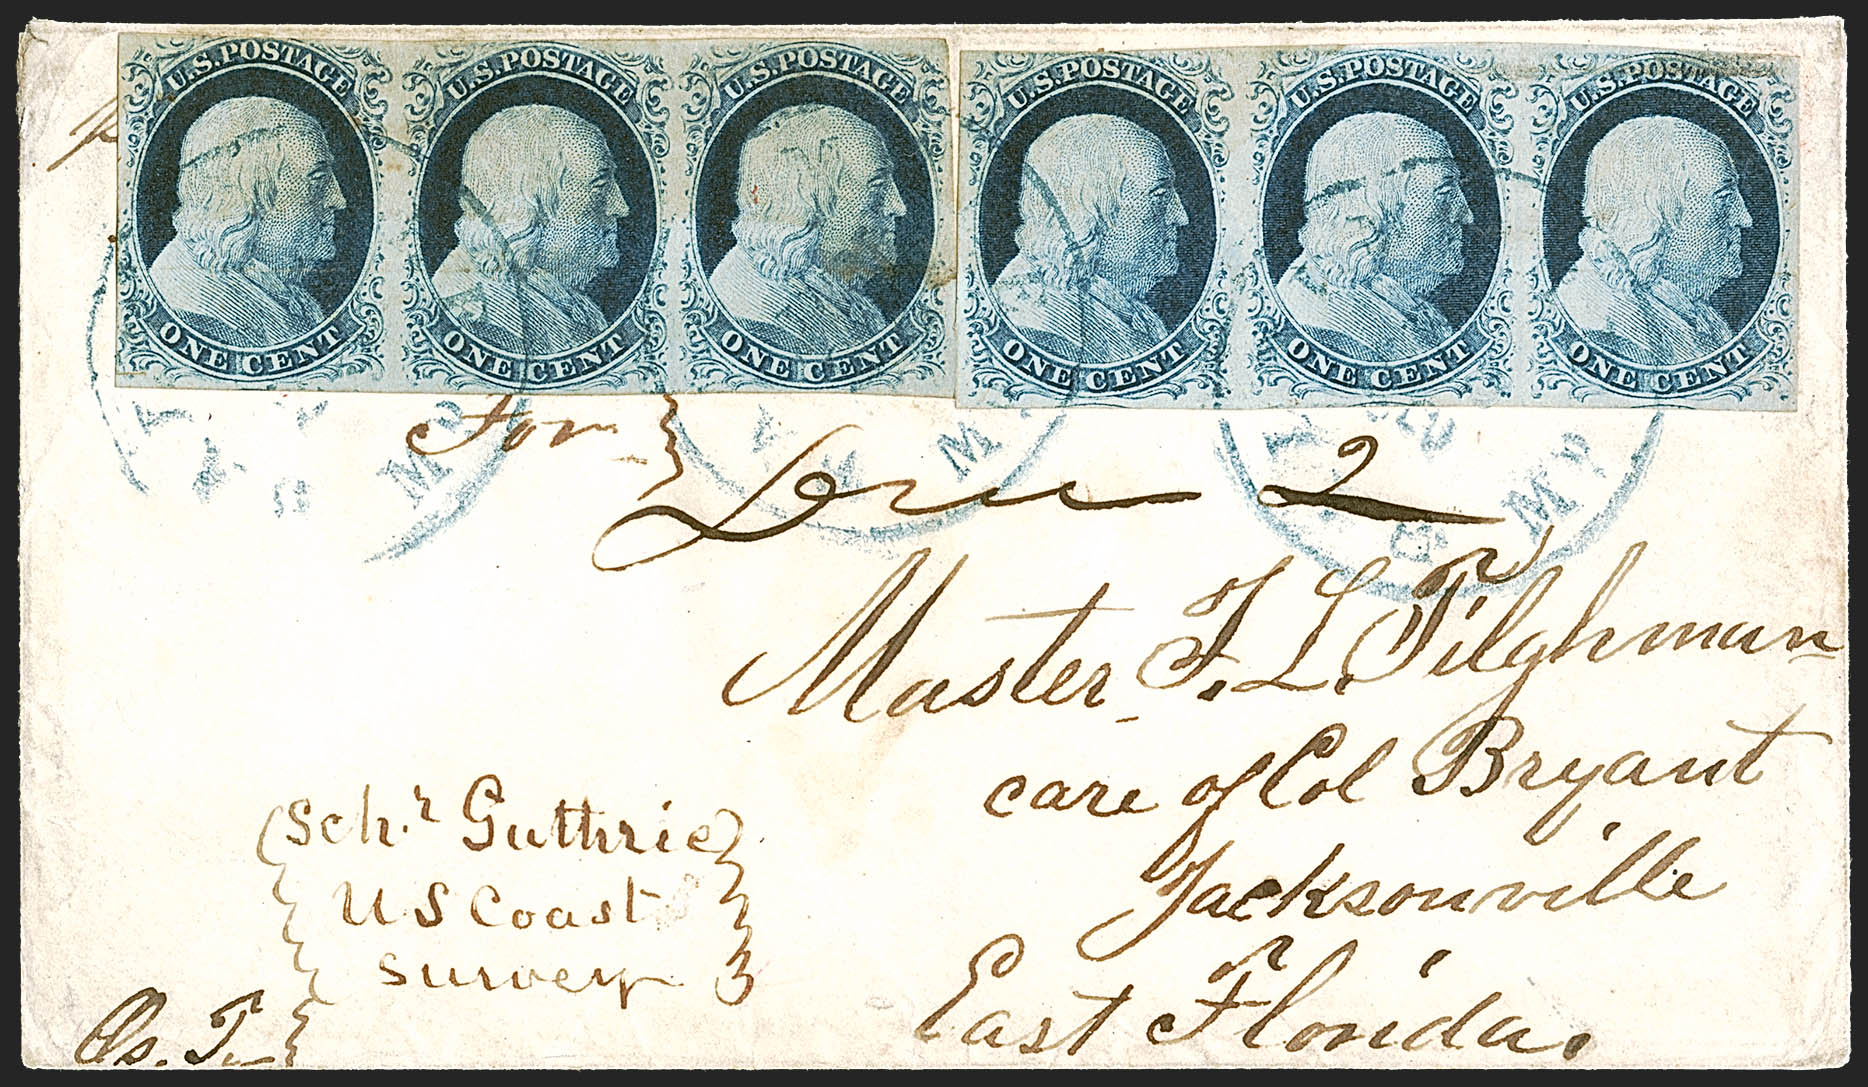 U.S. POSTAGE U.S. POSTAGE U.S. POSTAGE U.S. POSTAGE U.S. POSTAGE U.S. POSTAGE
ONE CENT ONE CENT ONE CENT ONE CENT ONE CENT ONE CENT
For
Due 2
Master F. L. Tilghman
care of Col Bryant
Jacksonville
East Florida.
Schr Guthrie
U S Coast
Survey